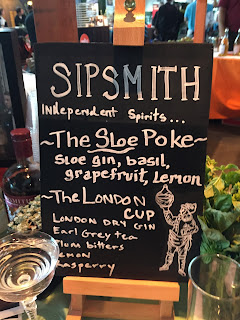 SIPSMITH
Independent Spirits...
~The Sloe Poke~
Sloe gin, basil,
grapefruit, Lemon
~The London
CUP
LONDON DRY GIN
Earl Grey tea
Plum bitters
LEMON
Rasperry